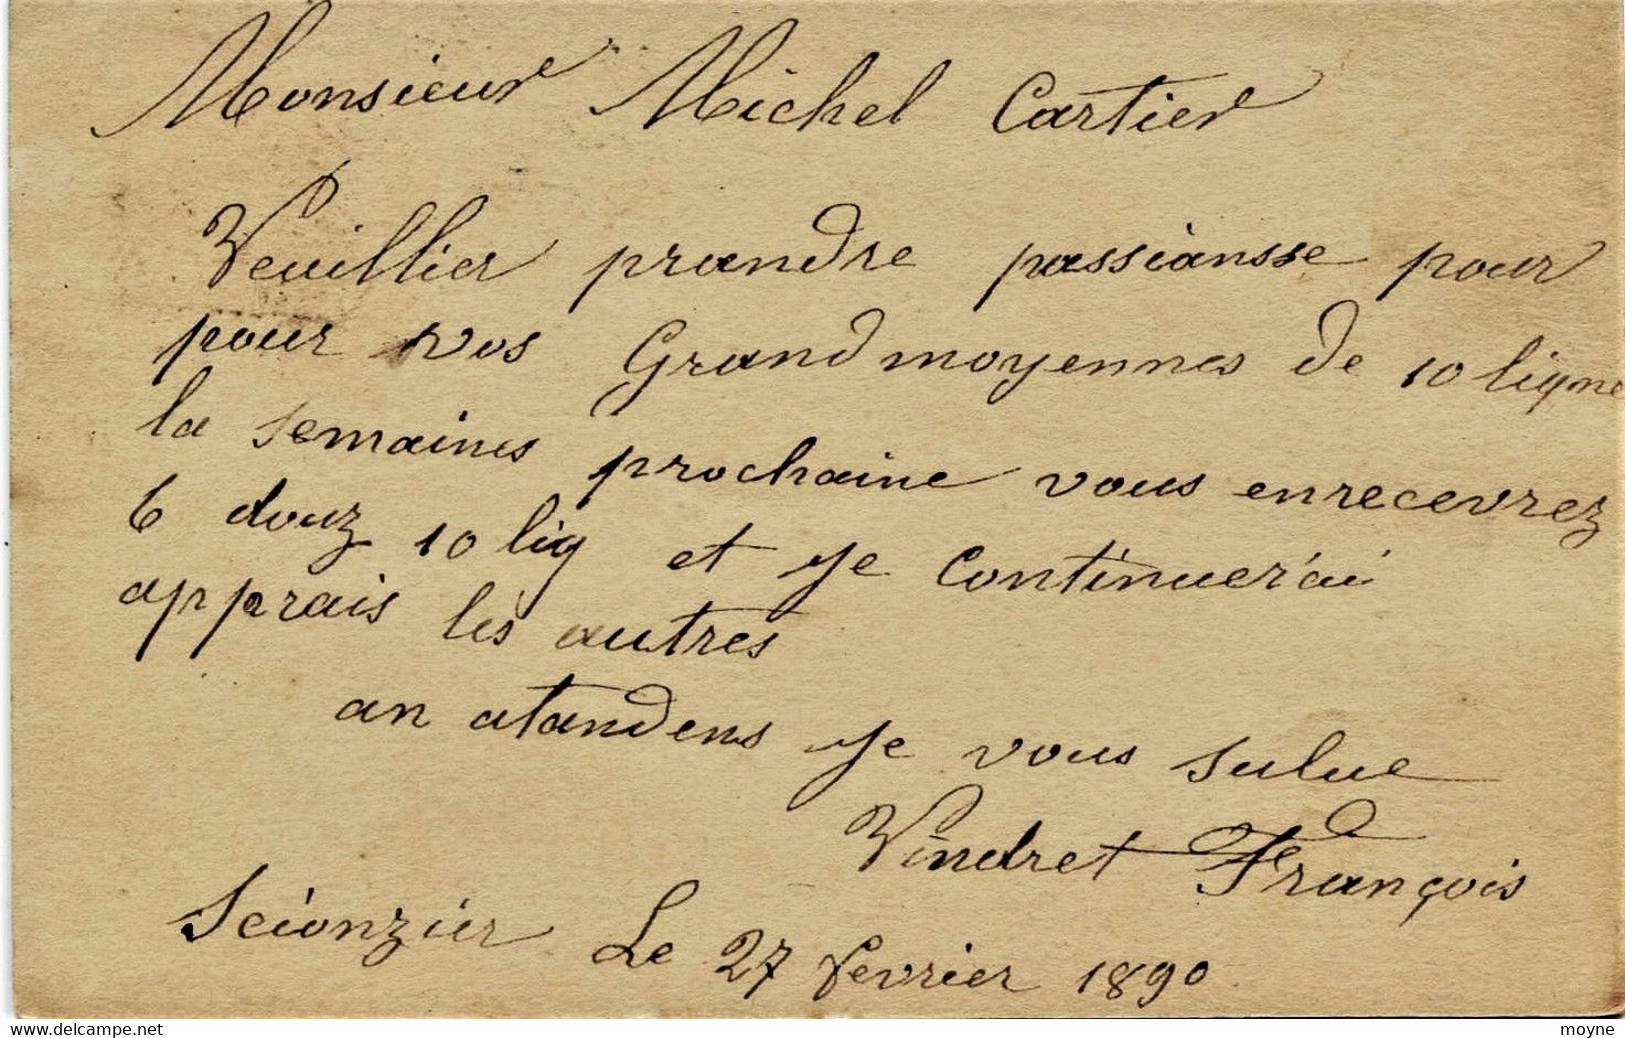 Monsieur Michel Cartier
Veuillier prandre passiansse pour
pour vos Grandmoyennes de 10 ligne
la semaines prochaine vous enrecevrez
6 douz 10 lig et je continuerai
apprais les autres
an atandens je vous salue
Vindret François
Scionzier Le 27 fevrier 1890
www.delcampe.net
moyne